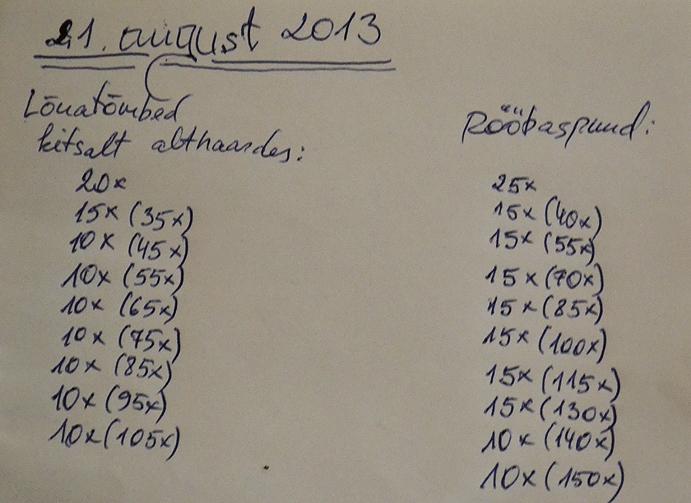 21. august 2013
Lõuatõmbed
kitsalt althaardes:
20x
15x (35x)
10x (45x)
10x (55x)
10x (65x)
10x (75x)
10x (85x)
10x (95x)
10x (105x)
Rööbaspuud:
25x
15x (40x)
15x (55x)
15x (70x)
15x (85x)
15x (100x)
15x (115x)
15x (130x)
10x (140x)
10x (150x)